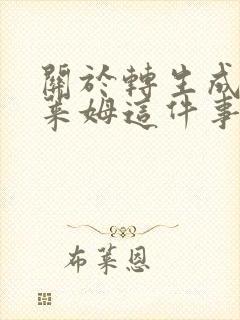 關於轉生成
萊姆這件事
布萊恩